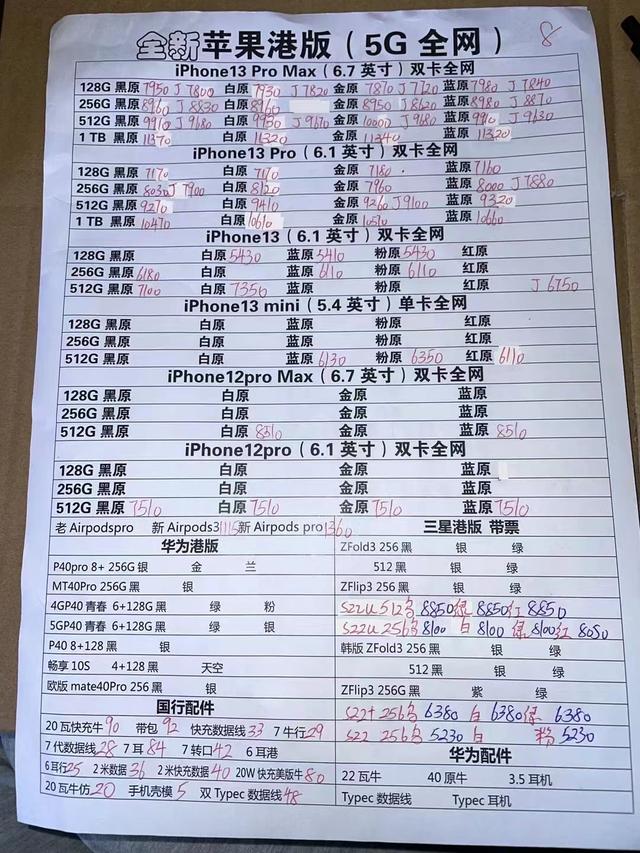 全新苹果港版（5G 全网） 8
iPhone13 Pro Max（6.7 英寸）双卡全网
128G 黑原 7950 J7800 白原 7930 J7820 金原 7870 J7720 蓝原 7980 J7840
256G 黑原 8960 J8830 白原 8960 金原 8950 J8620 蓝原 8980 J8870
512G 黑原 9910 J9680 白原 9930 J9670 金原 10000 J9680 蓝原 9910 J9630
1 TB 黑原 11370 白原 11320 金原 11340 蓝原 11320
iPhone13 Pro（6.1 英寸）双卡全网
128G 黑原 7170 白原 7170 金原 7180 蓝原 7160
256G 黑原 8030 J7900 白原 8120 金原 7960 蓝原 8000 J7880
512G 黑原 9270 白原 9410 金原 9260 J9100 蓝原 9320
1 TB 黑原 10470 白原 10610 金原 10510 蓝原 10660
iPhone13（6.1 英寸）双卡全网
128G 黑原 白原 5430 蓝原 5410 粉原 5430 红原
256G 黑原 6180 白原 蓝原 6110 粉原 6110 红原
512G 黑原 7100 白原 7350 蓝原 粉原 红原 J6750
iPhone13 mini（5.4 英寸）单卡全网
128G 黑原 白原 蓝原 粉原 红原
256G 黑原 白原 蓝原 粉原 红原
512G 黑原 白原 蓝原 6130 粉原 6350 红原 6110
iPhone12pro Max（6.7 英寸）双卡全网
128G 黑原 白原 金原 蓝原
256G 黑原 白原 金原 蓝原
512G 黑原 白原 8510 金原 蓝原 8510
iPhone12pro（6.1 英寸）双卡全网
128G 黑原 白原 金原 蓝原
256G 黑原 白原 金原 蓝原
512G 黑原 7510 白原 7510 金原 7510 蓝原 7510
老 Airpodspro 新 Airpods3 1115 新 Airpods pro 1360
华为港版
P40pro 8+ 256G 银 金 兰
MT40Pro 256G 黑 银
4GP40 青春 6+128G 黑 绿 粉
5GP40 青春 6+128G 黑 绿 银
P40 8+128 黑 银
畅享 10S 4+128 黑 天空
欧版 mate40Pro 256 黑 银
国行配件
20 瓦快充牛 90 带包 92 快充数据线 33 7 牛行 29
7 代数据线 28 7 耳 84 7 转口 42 6 耳港
6 耳行 25 2 米数据 36 2 米快充数据 40 20W 快充美版牛 80
20 瓦牛仿 20 手机壳模 5 双 Typec 数据线 48
三星港版 带票
ZFold3 256 黑 银 绿
512 黑 银 绿
ZFlip3 256 黑 银 绿
S22U 512 8850 绿 8850 红 8850
S22U 256 8100 白 8100 绿 8100 红 8050
韩版 ZFold3 256 黑 银 绿
512 黑 银 绿
ZFlip3 256G 黑 紫 绿
S22+ 256 6380 白 6380 绿 6380
S22 256 5230 白 粉 5230
华为配件
22 瓦牛 40 原牛 3.5 耳机
Typec 数据线 Typec 耳机